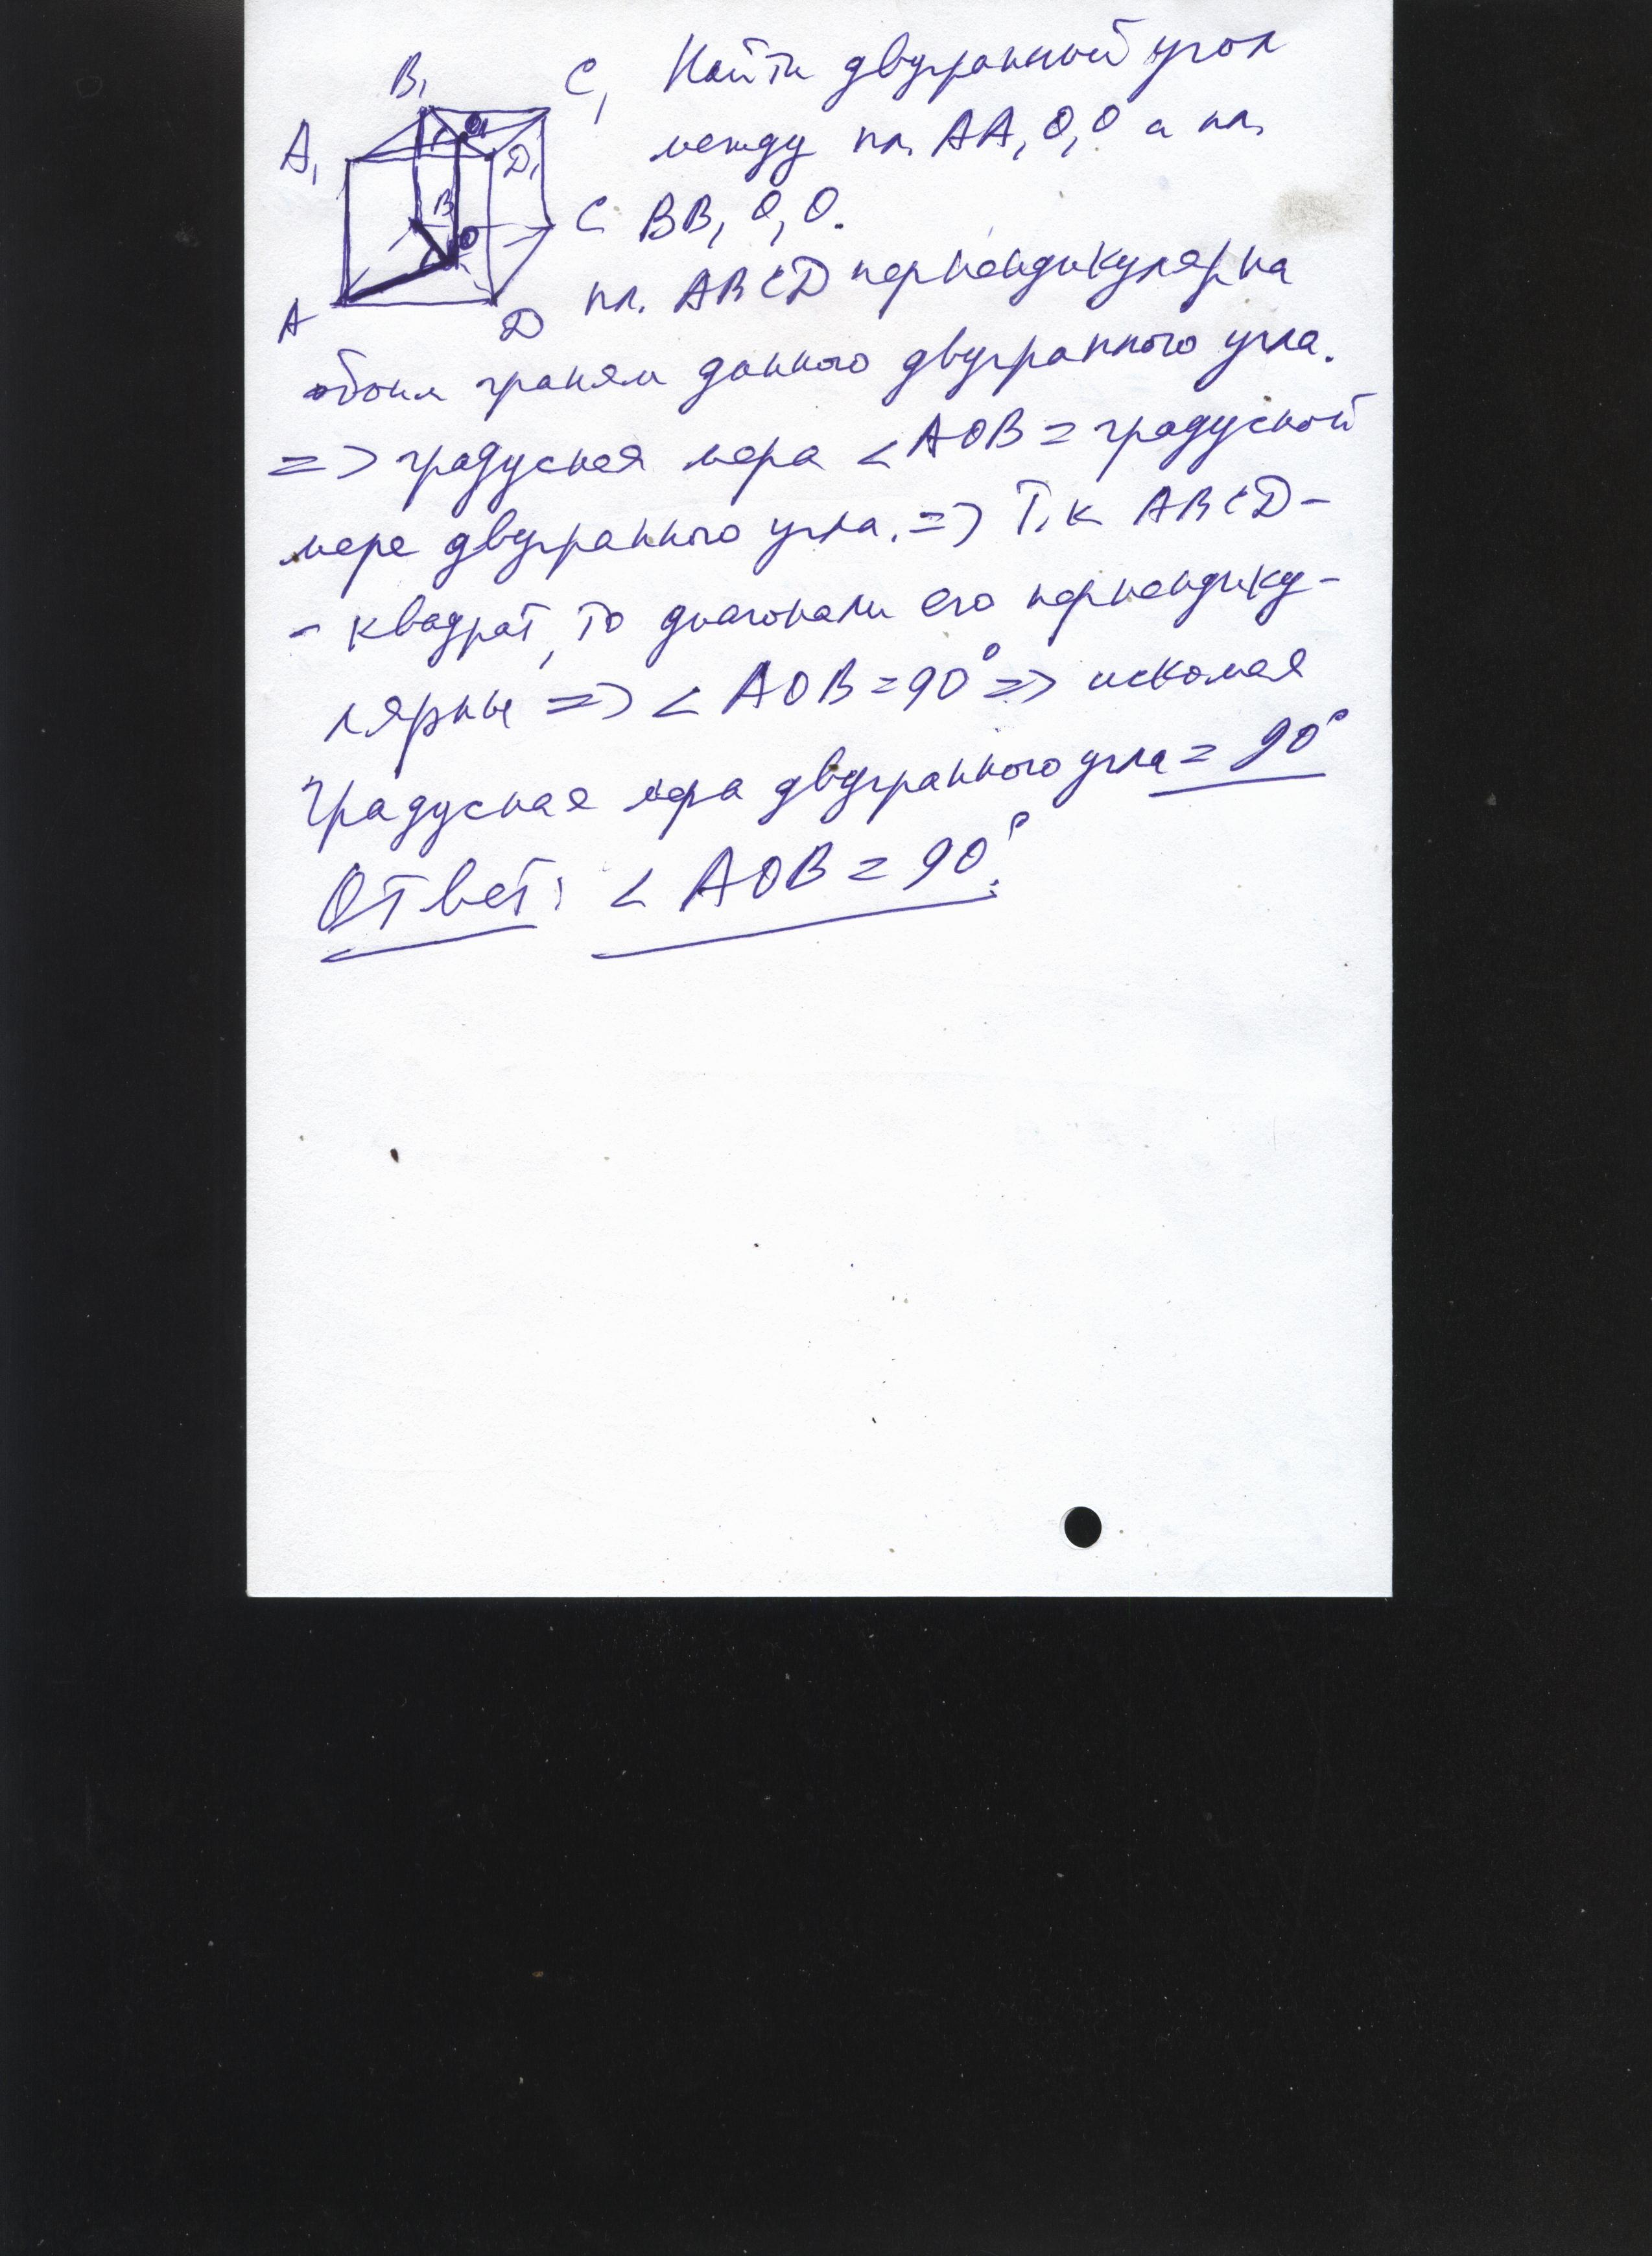 B₁ C₁ Найти двугранный угол
A₁ O₁ D₁ между пл. AA₁O₁O и пл.
B O C BB₁O₁O.
A D пл. ABCD перпендикулярна
обоим граням данного двугранного угла.
=> градусная мера <AOB = градусной
мере двугранного угла. => Т.к ABCD -
- квадрат, то диагонали его перпендику-
лярны => < AOB = 90° => искомая
градусная мера двугранного угла = 90°
Ответ: < AOB = 90°.